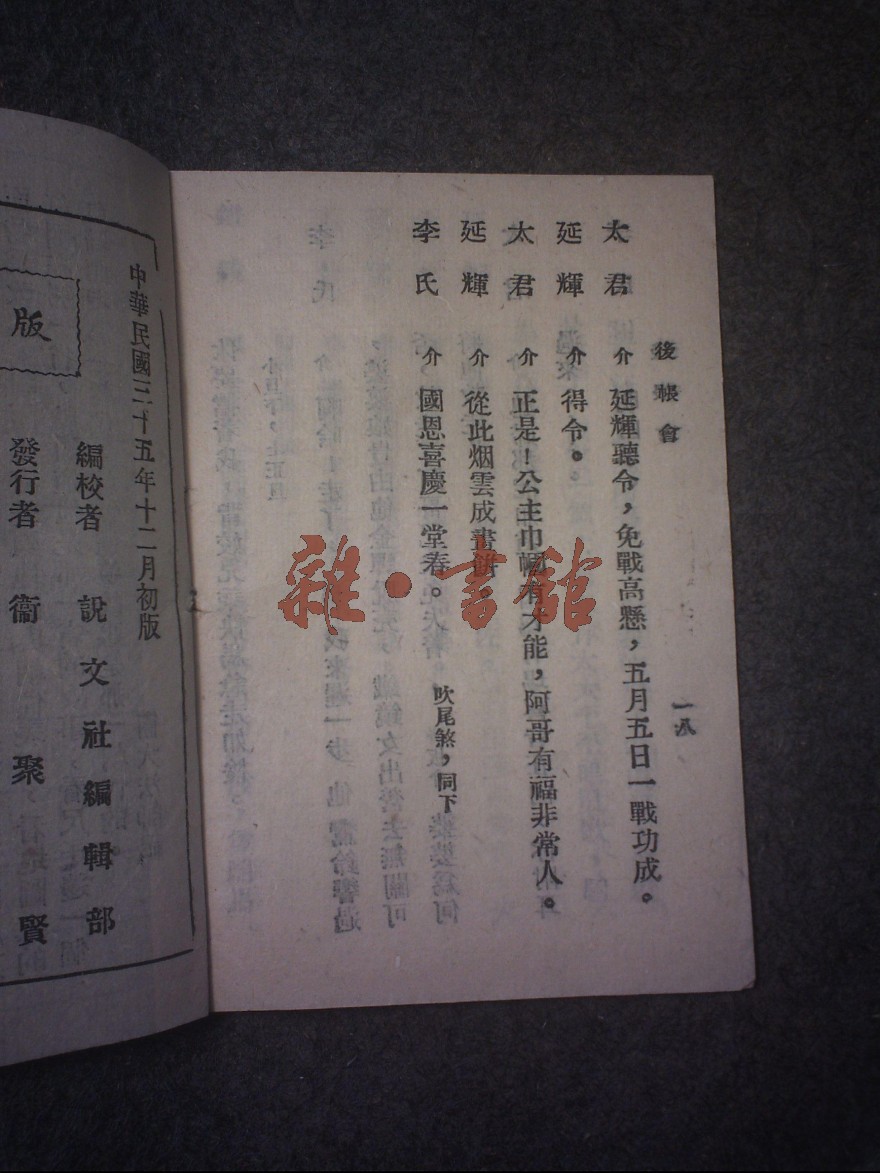 後帳會
一八
太君 介 延輝聽令，免戰高懸，五月五日一戰功成。
延輝 介 得令。
太君 介 正是！公主巾幗有才能，阿哥有福非常人。
延輝 介 從此烟雲成畫餅。
李氏 介 國恩喜慶一堂春。
吹尾煞，同下
雜·書館
中華民國三十五年十二月初版
編校者 說文社編輯部
發行者 衞聚賢
版